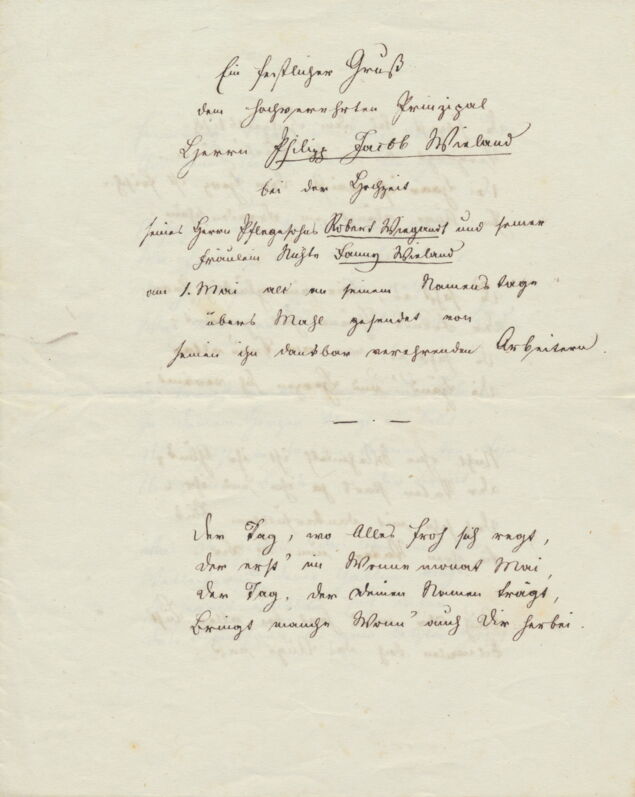 Ein festlicher Gruß
dem hochverehrten Prinzipal
Herrn Philipp Jacob Wieland
bei der Hochzeit
seines Herrn Pflegesohns Robert Wiegandt und seiner
Fräulein Nichte Fanny Wieland
am 1. Mai als an seinem Namenstage
übers Mahl gesendet von
seinen ihn dankbar verehrenden Arbeitern.
— · —
Der Tag, wo Alles froh sich regt,
der erst' im Wonnemonat Mai,
der Tag, der deinen Namen trägt,
Bringt manche Wonn' auch Dir herbei.